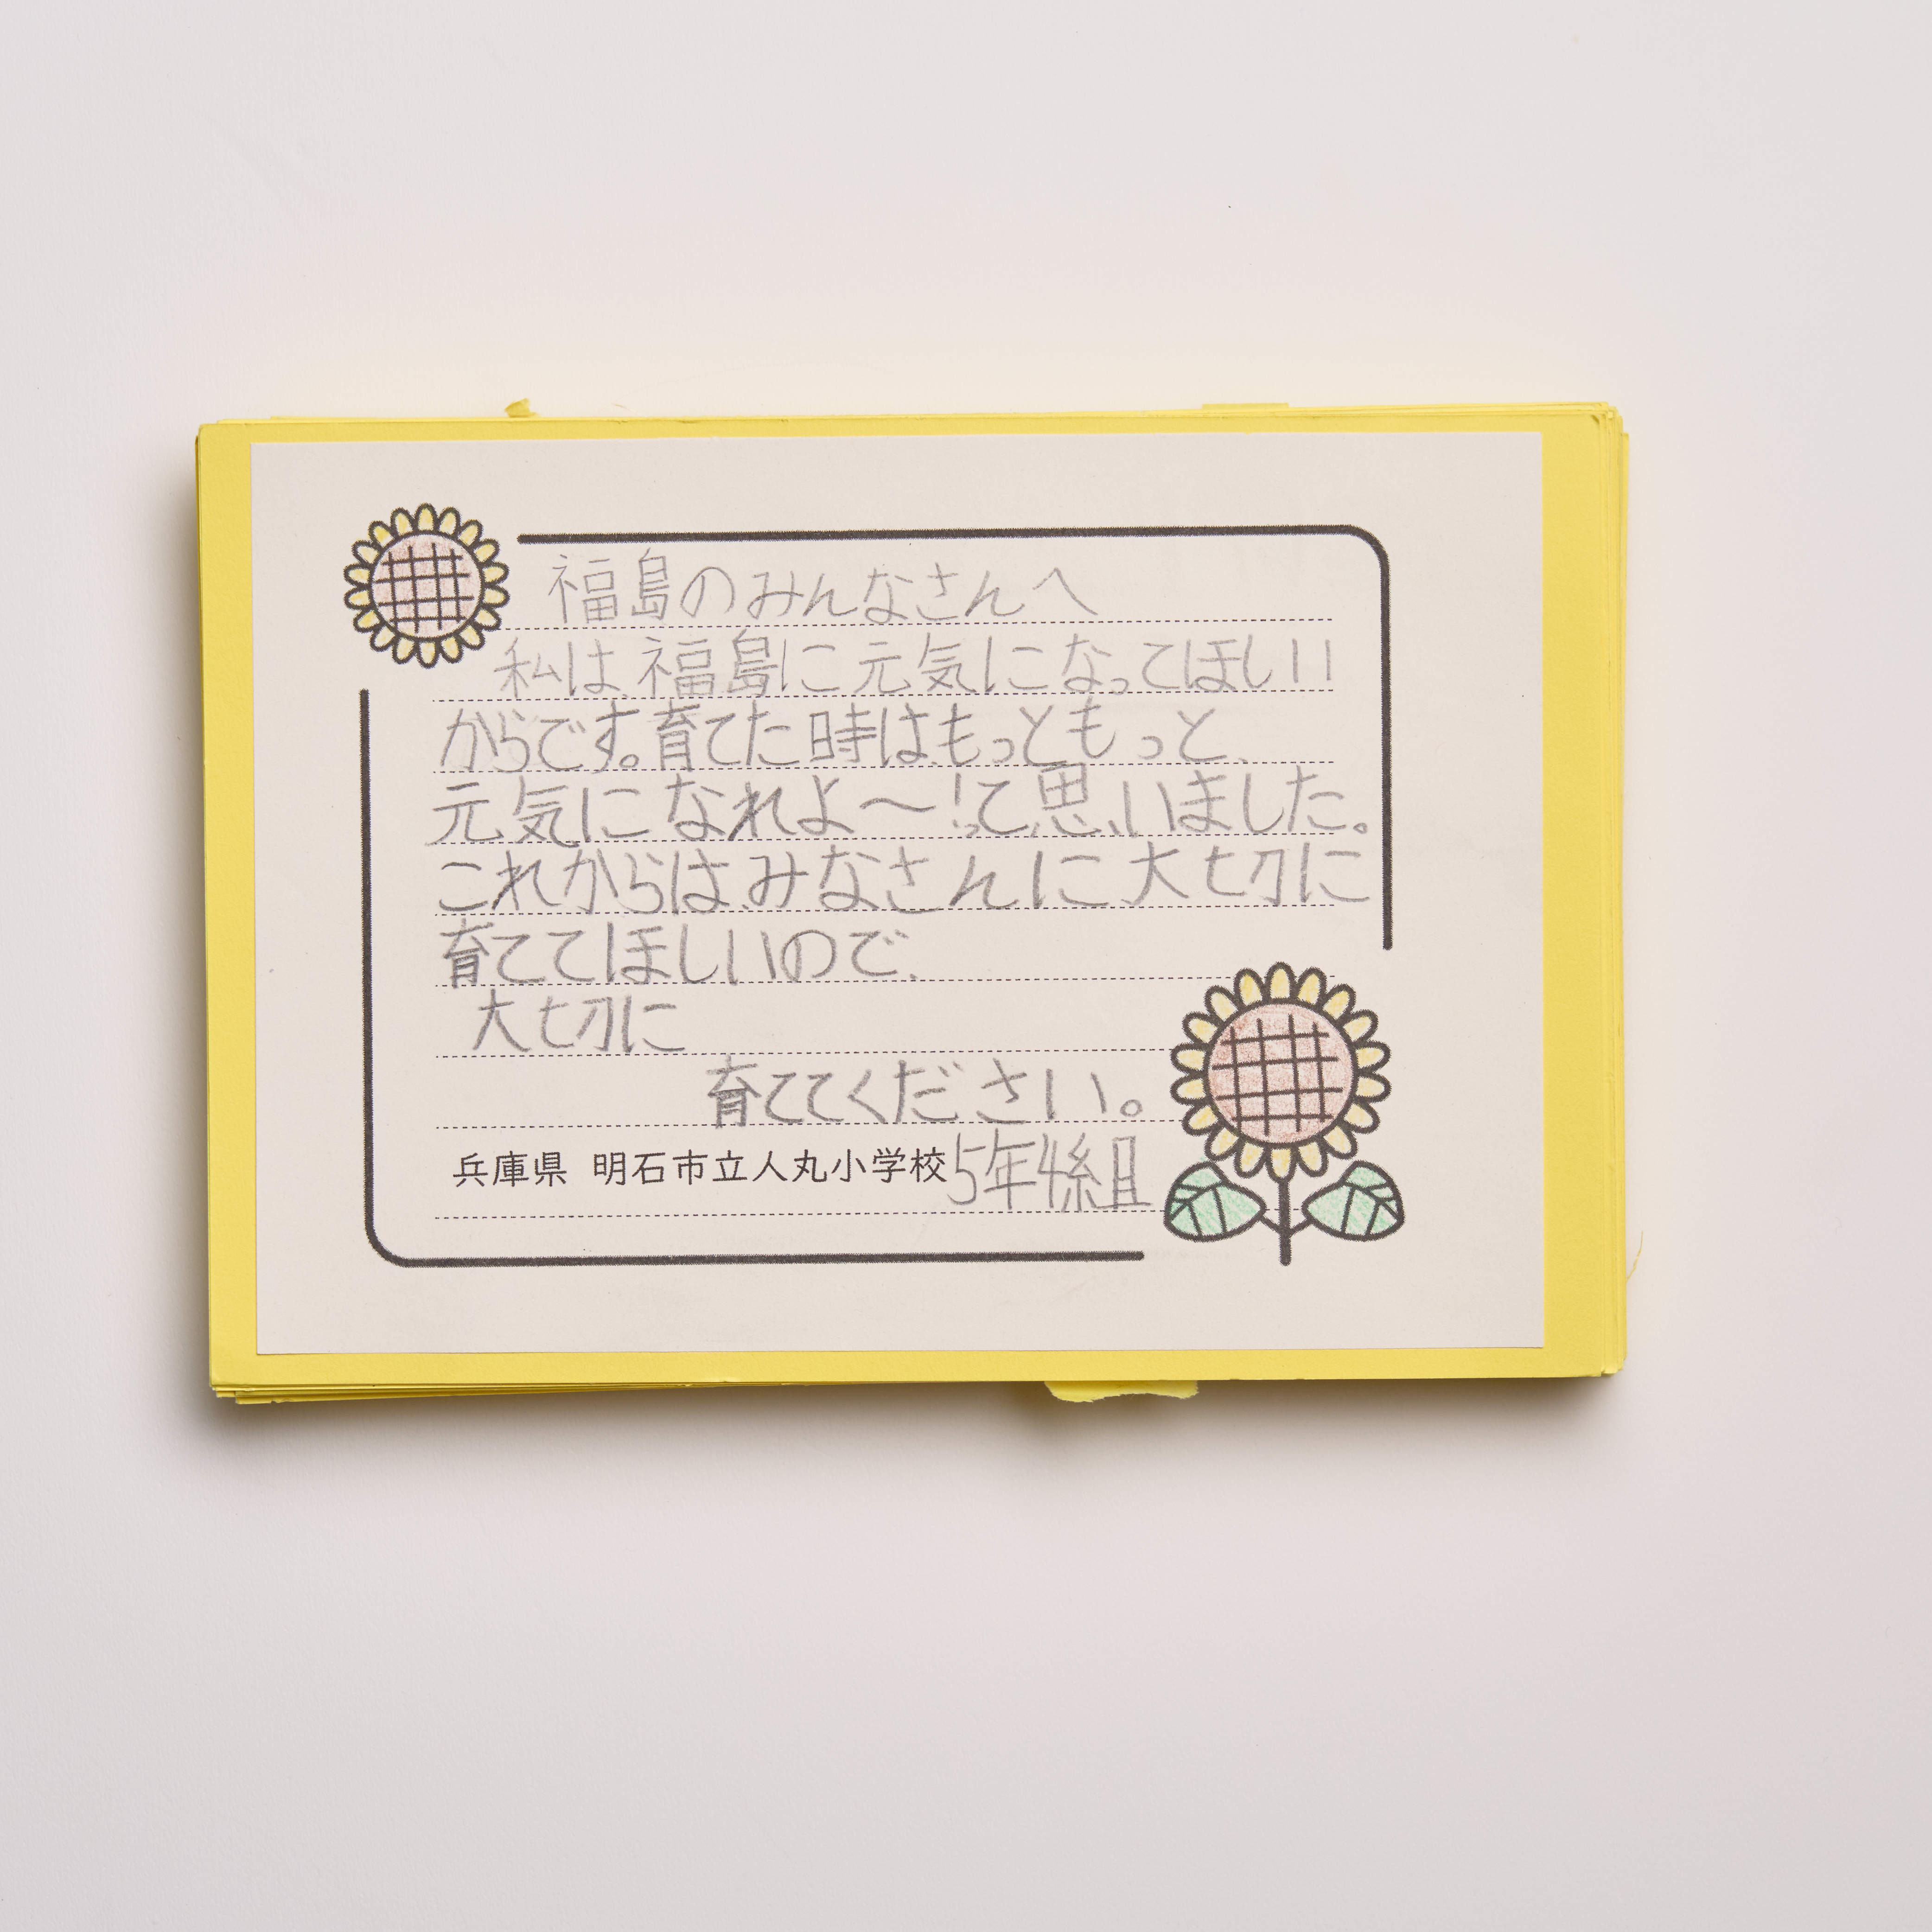 福島のみんなさんへ
私は、福島に元気になってほしい
からです。育てた時は、もっともっと、
元気になれよ〜!って、思いました。
これからは、みなさんに大切に
育ててほしいので、
大切に
育ててください。
兵庫県 明石市立人丸小学校5年4組